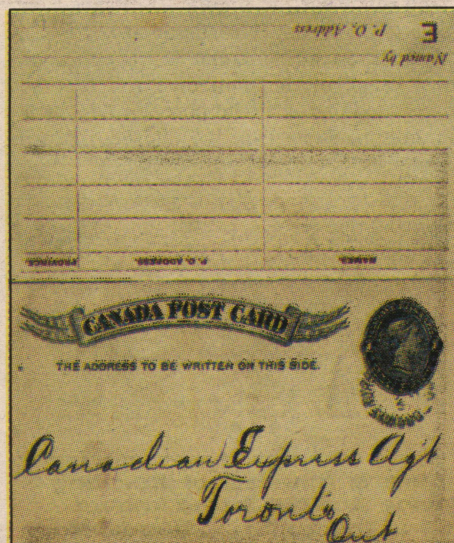 E
P. O. Address
Named by
PROVINCE. P. O. ADDRESS. NAMES.
CANADA POST CARD
THE ADDRESS TO BE WRITTEN ON THIS SIDE.
Canadian Express Agt
Toronto
Ont